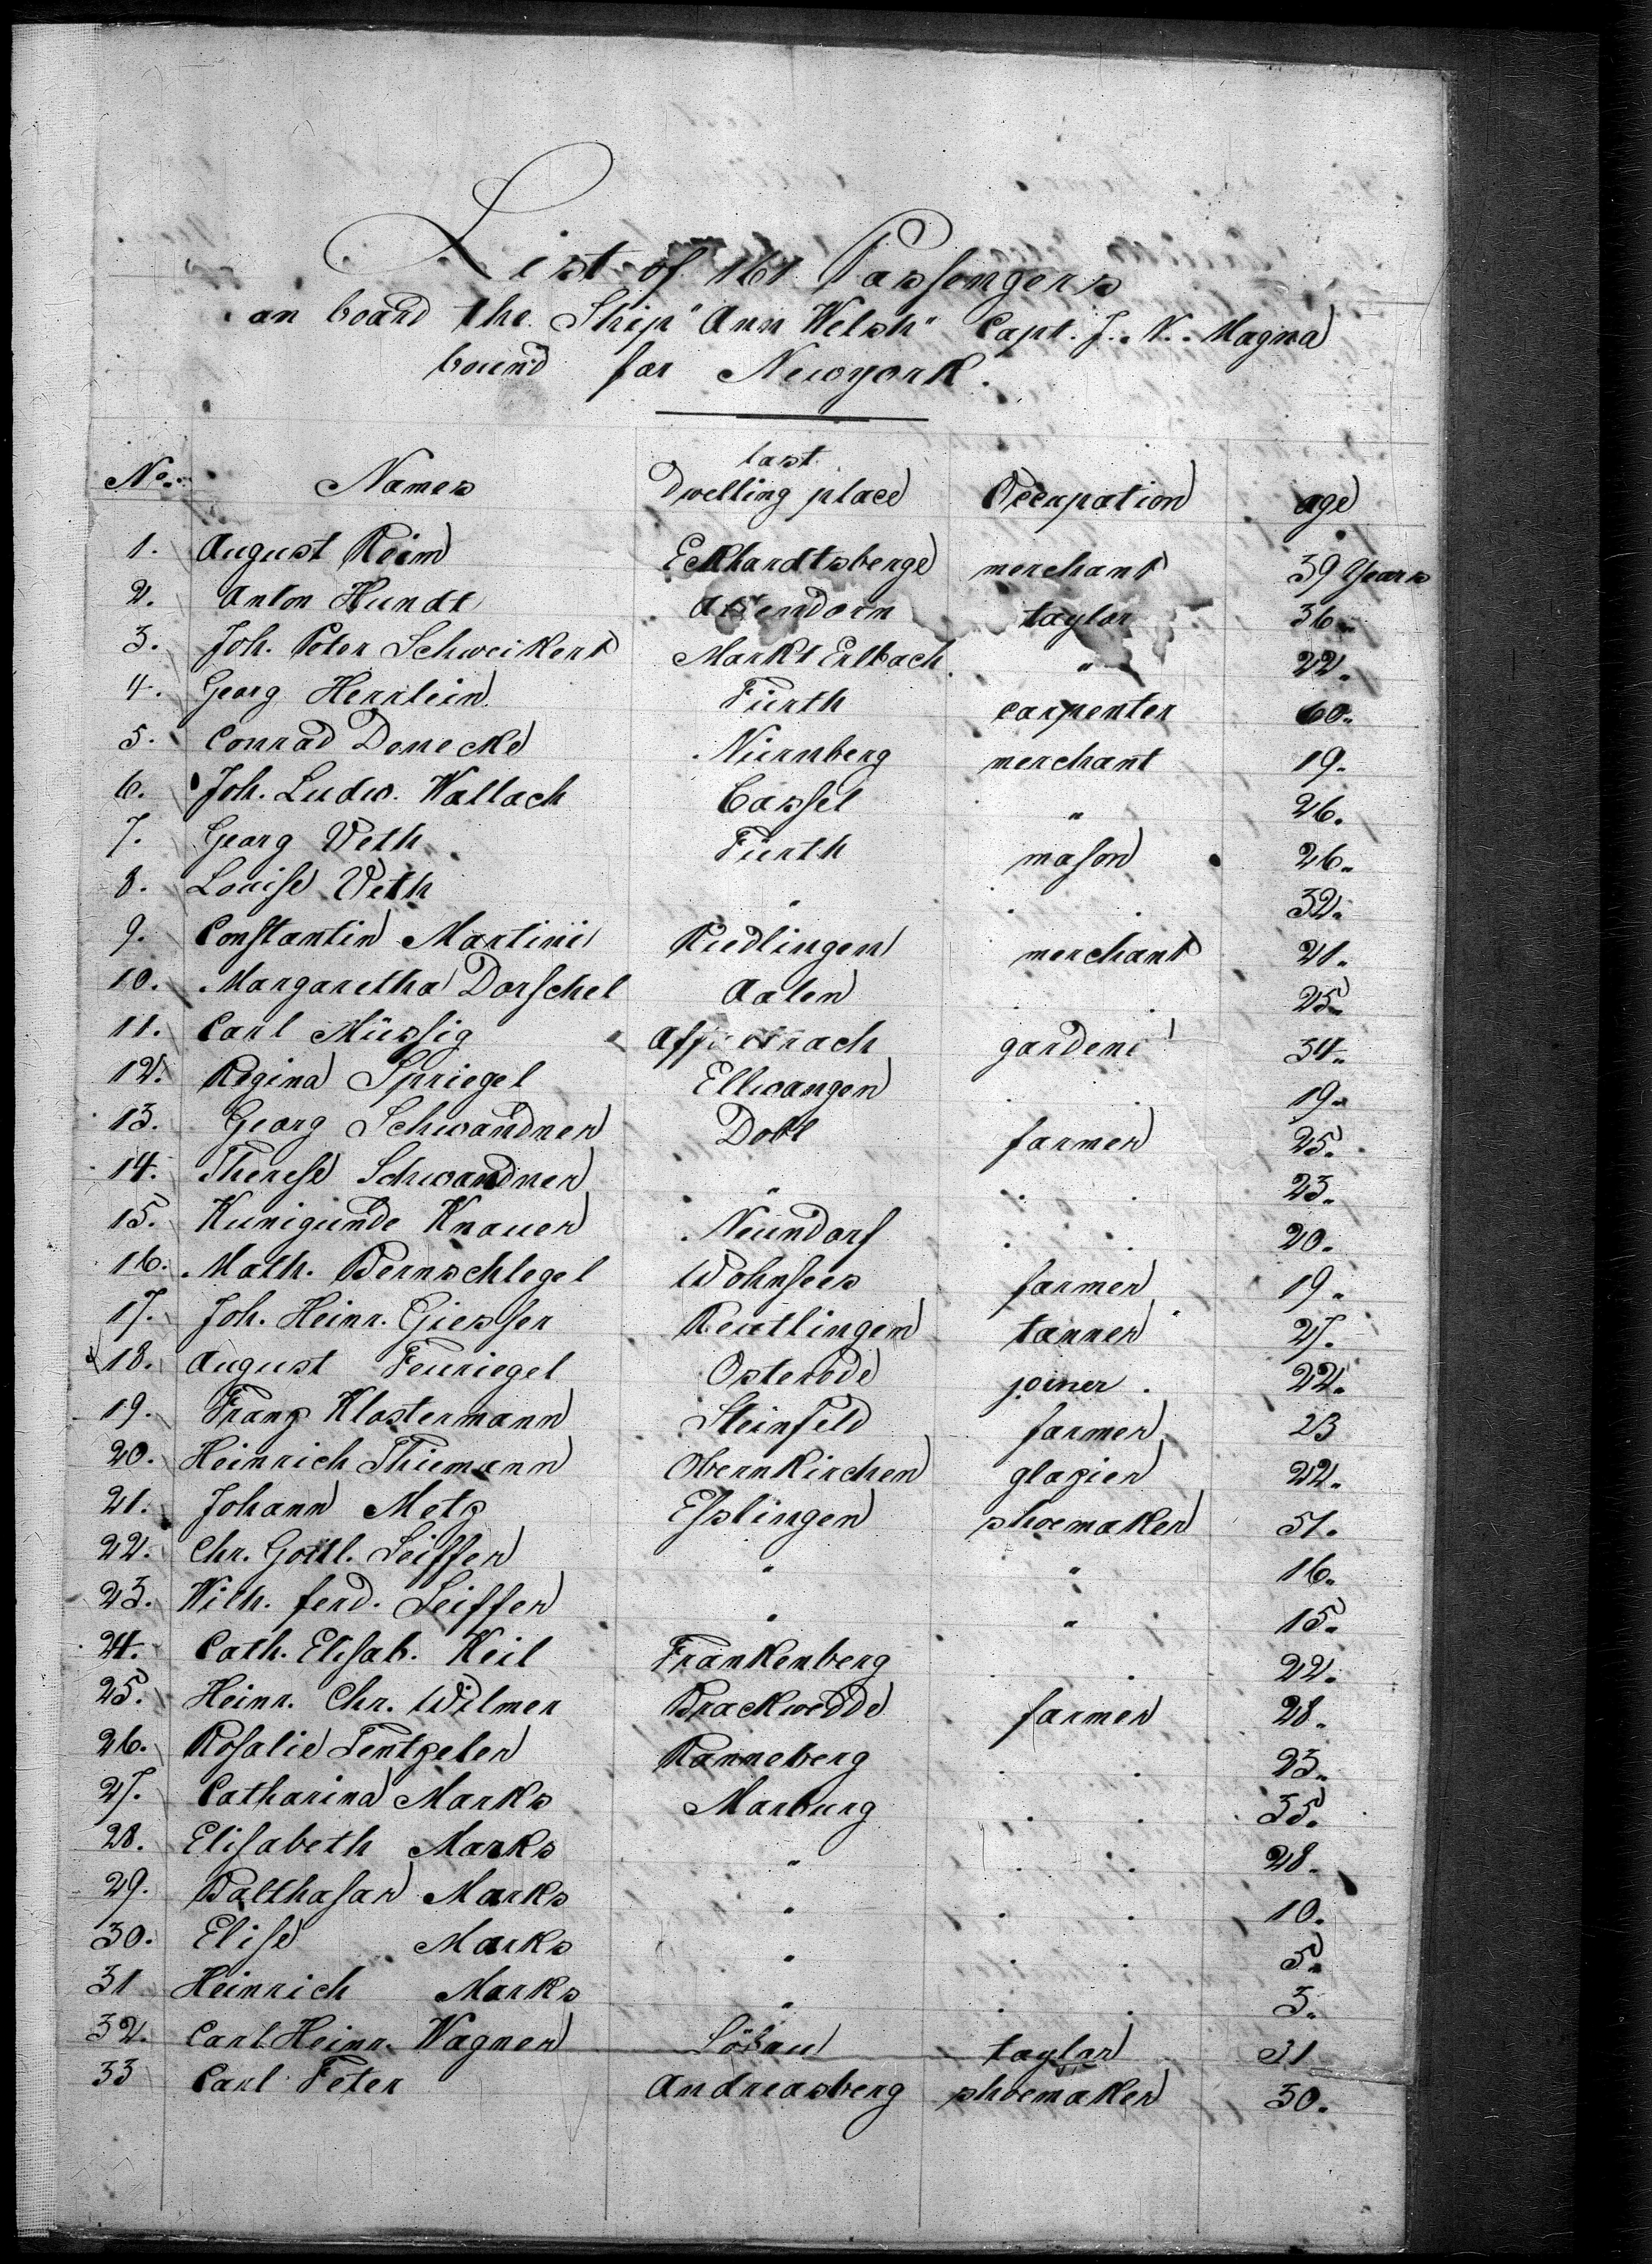 List of 161 Passengers
on board the Ship "Ann Welsh" Capt. J. N. Magna
bound for Newyork.
No. Names last Dwelling place Occupation age
1. August Reim Eckhardtsberge merchant 39 Years
2. Anton Hundt Attendorn taylor 36 "
3. Joh. Peter Schweikert Markt Erlbach " 22 "
4. Georg Herrlein Fürth carpenter 60 "
5. Conrad Denecke Nürnberg merchant 19 "
6. Joh. Ludw. Wallach Cassel " 26 "
7. Georg Veth Fürth mason 26 "
8. Louise Veth " . . 32 "
9. Constantin Martini Riedlingen merchant 21 "
10. Margaretha Dorschel Aalen . . 25 "
11. Carl Müssig gardene 34 "
12. Regina Spriegel Ellwangen . . 19 "
13. Georg Schwandner Dobl farmer 25 "
14. Therese Schwandner " . . 23 "
15. Kunigunde Knauer Neundorf . . 20 "
16. Math. Bernschlegel Wohnsees farmer 19 "
17. Joh. Heinr. Giesser Reutlingen tanner 27 "
18. August Feuriegel Osterode joiner 22 "
19. Franz Klostermann Steinfeld farmer 23
20. Heinrich Thiemann Obernkirchen glazier 22 "
21. Johann Metz Esslingen shoemaker 51 "
22. Chr. Gottl. Seiffer " " 16 "
23. Wilh. ferd. Seiffer " " 15 "
24. Cath. Elisab. Keil Frankenberg . . 22 "
25. Heinr. Chr. Wilmer Brackwedde farmer 28 "
26. Rosalie Tentzeler Ranneberg . . 23 "
27. Catharina Marks Marburg . . 35 "
28. Elisabeth Marks " . . 28 "
29. Balthasar Marks " . . 10 "
30. Elise Marks " . . 5 "
31 Heinrich Marks " . . 3 "
32. Carl Heinr. Wagner Löbau taylor 31
33 Carl Feter Andreasberg shoemaker 30 "